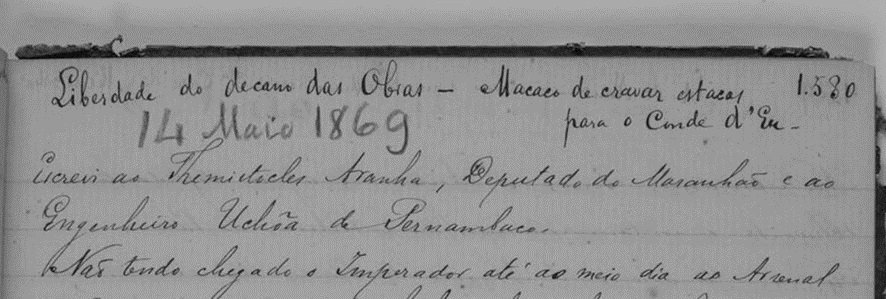 Liberdade do decano das Obras – Macaco de cravar estacas 1.580
para o Conde d'Eu –
14 Maio 1869
Escrevi ao Themistocles Aranha, Deputado do Maranhão e ao
Engenheiro Uchôa de Pernambuco.
Não tendo chegado o Imperador até ao meio dia ao Arsenal